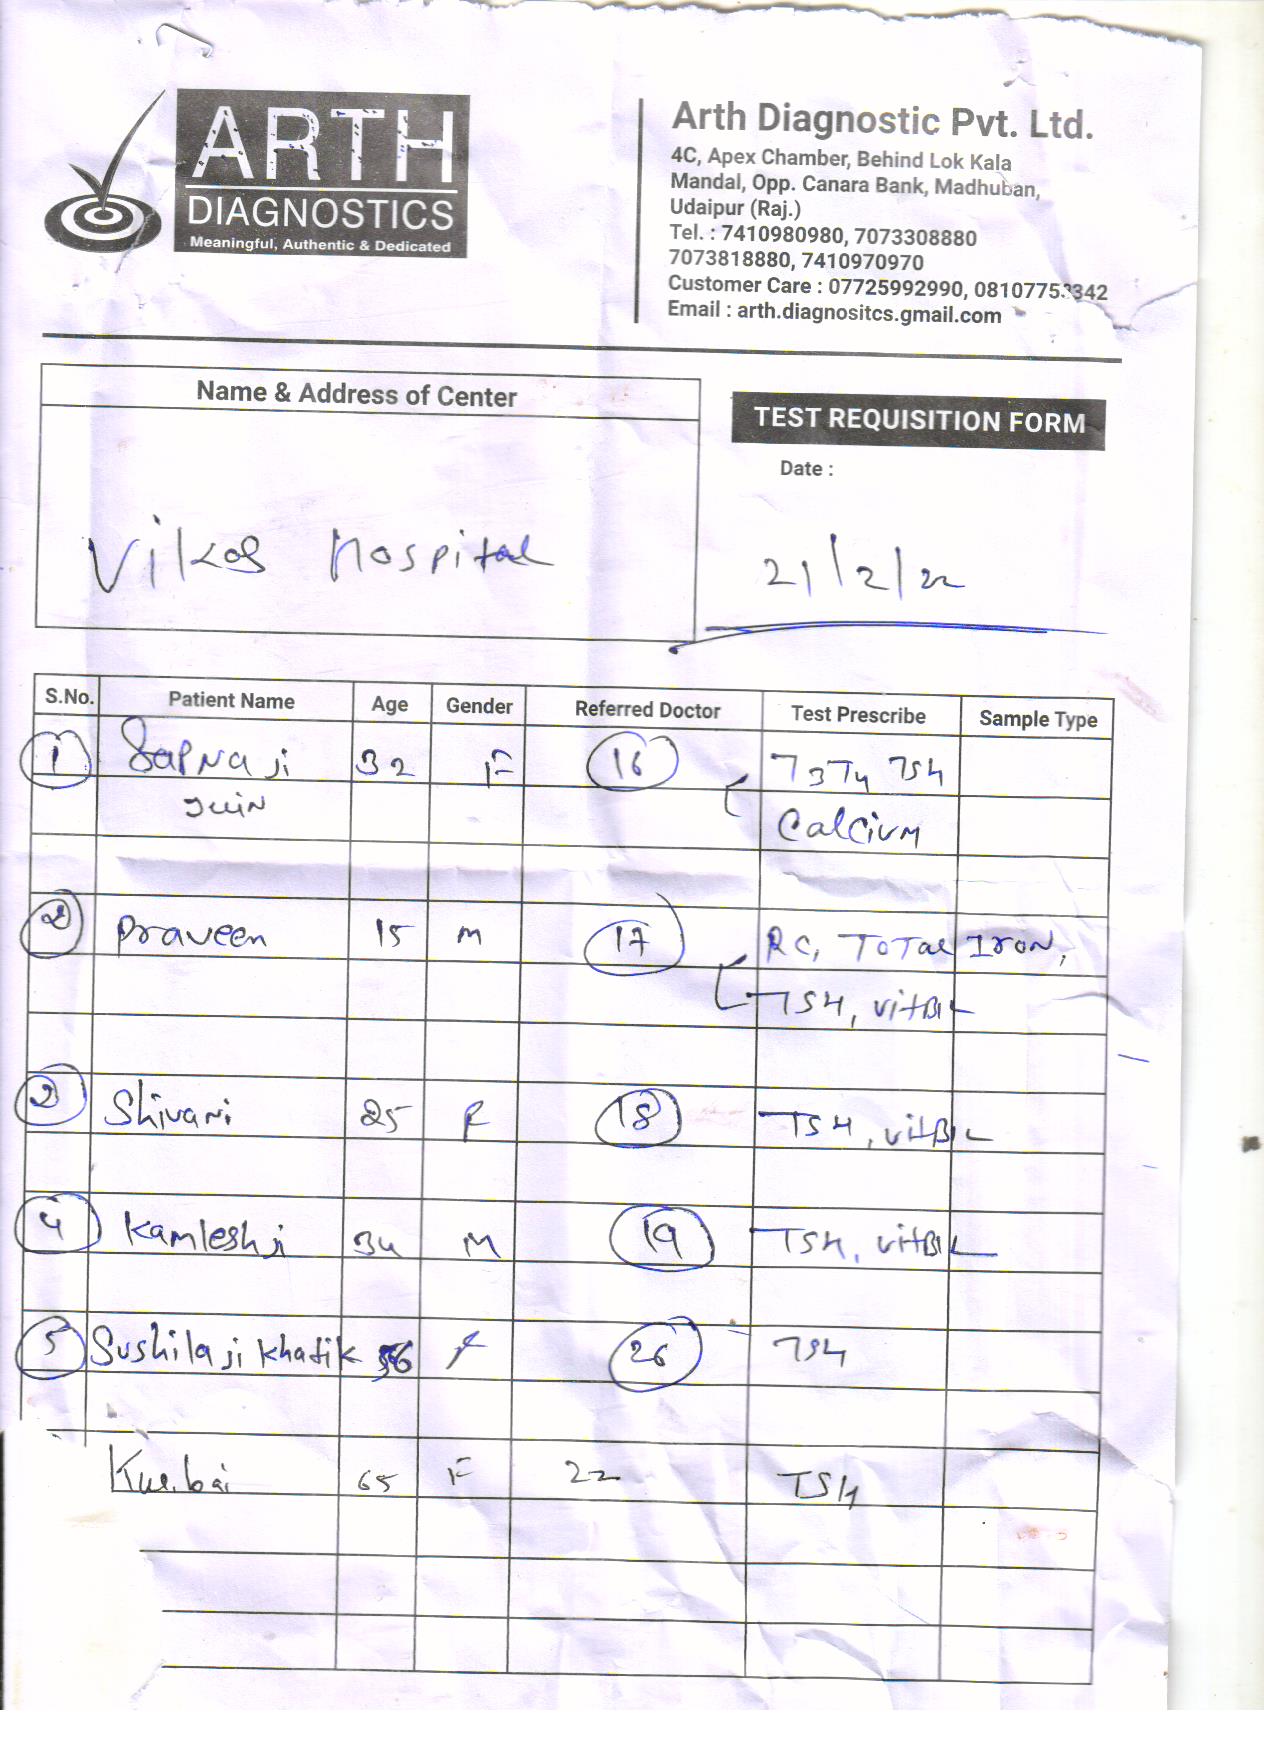 ARTH
DIAGNOSTICS
Meaningful, Authentic & Dedicated
Arth Diagnostic Pvt. Ltd.
4C, Apex Chamber, Behind Lok Kala
Mandal, Opp. Canara Bank, Madhuban,
Udaipur (Raj.)
Tel. : 7410980980, 7073308880
7073818880, 7410970970
Customer Care : 07725992990, 08107753342
Email : arth.diagnositcs.gmail.com
Name & Address of Center
Vikas Hospital
TEST REQUISITION FORM
Date :
21/2/22
S.No. Patient Name Age Gender Referred Doctor Test Prescribe Sample Type
1 Sapna ji 32 F 16 T3T4 TSH
Calcium
2 Praveen 15 M 17 RC, TOTAL IRON,
TSH, VitB12
3 Shivani 25 F 18 TSH, VitB12
4 Kamlesh ji 34 M 19 TSH, VitB12
5 Sushila ji Khatik 56 F 26 TSH
65 F 22 TSH